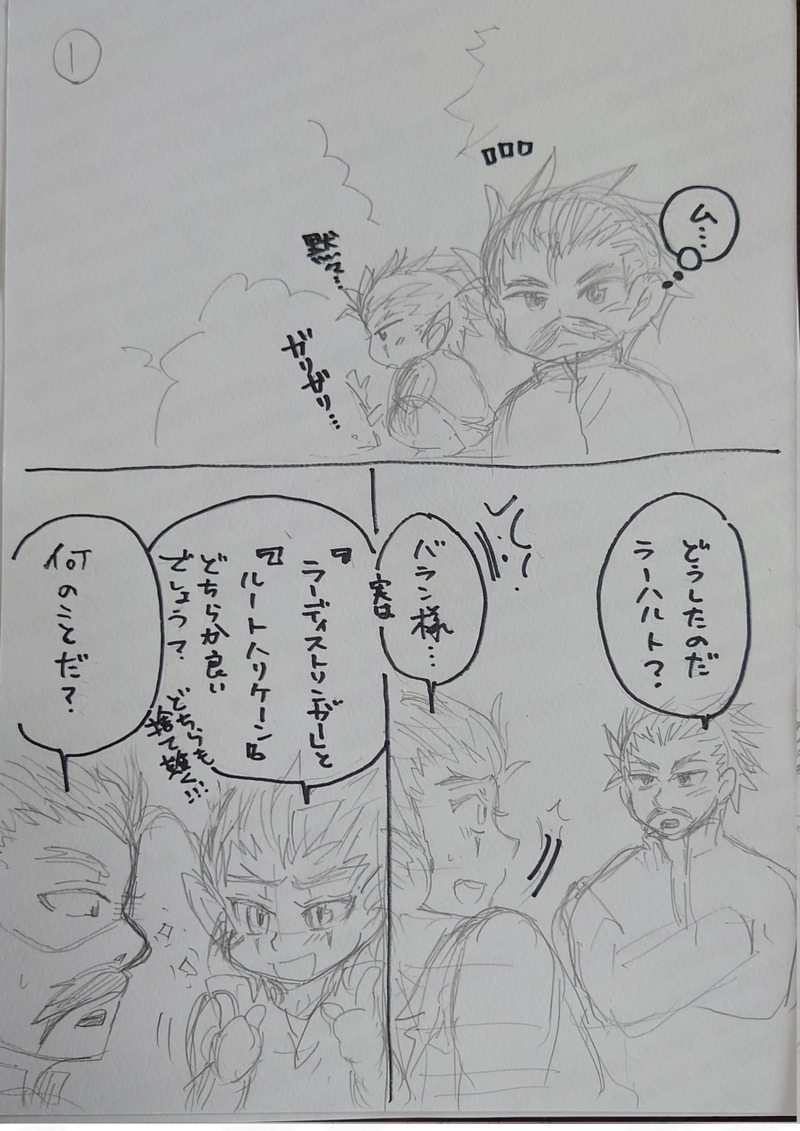 1
ム…
黙々…
ガリガリ…
どうしたのだ
ラーハルト?
バラン様…
実は
『ラーディストリンガー』と
『ルートハリケーン』
どちらが良い
でしょう?
どちらも
捨て難く…
何のことだ?